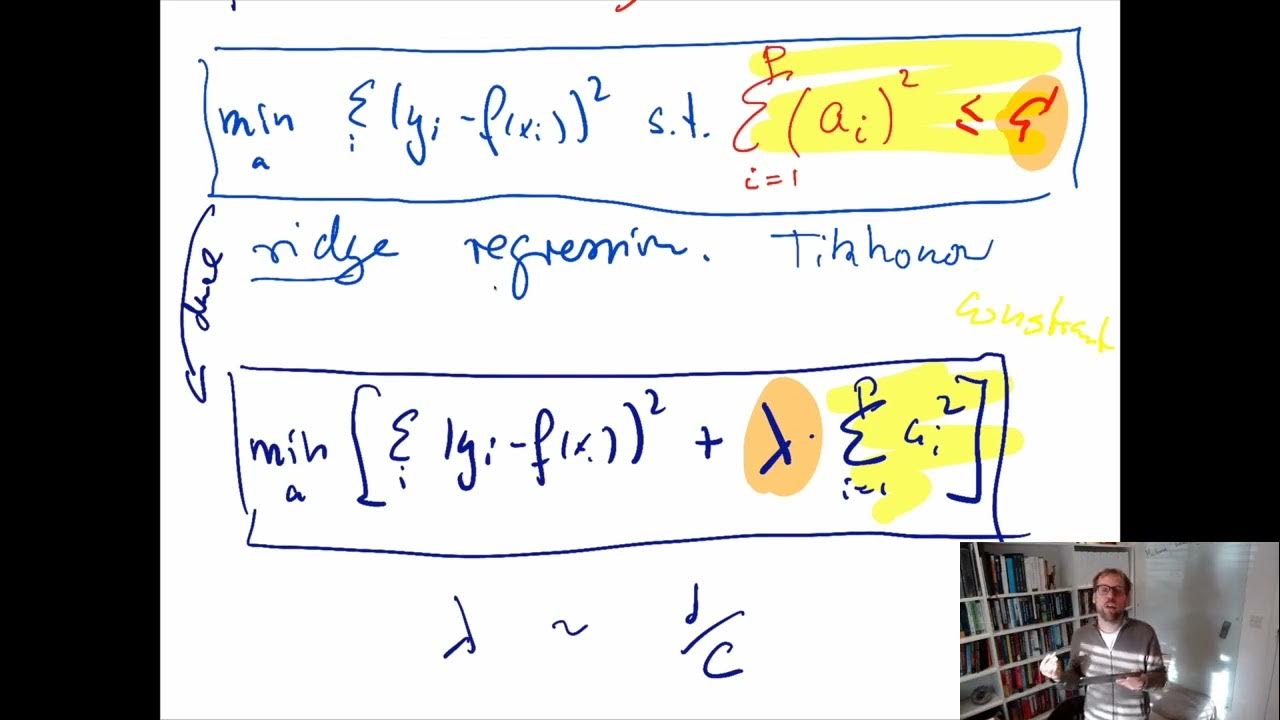 min a Σ i (yi - f(xi))² s.t. Σ i=1 P (ai)² ≤ C
ridge regression. Tikhonov
dual
constraint
min a [ Σ i (yi - f(xi))² + λ · Σ i=1 P ai² ]
λ ~ 1/C